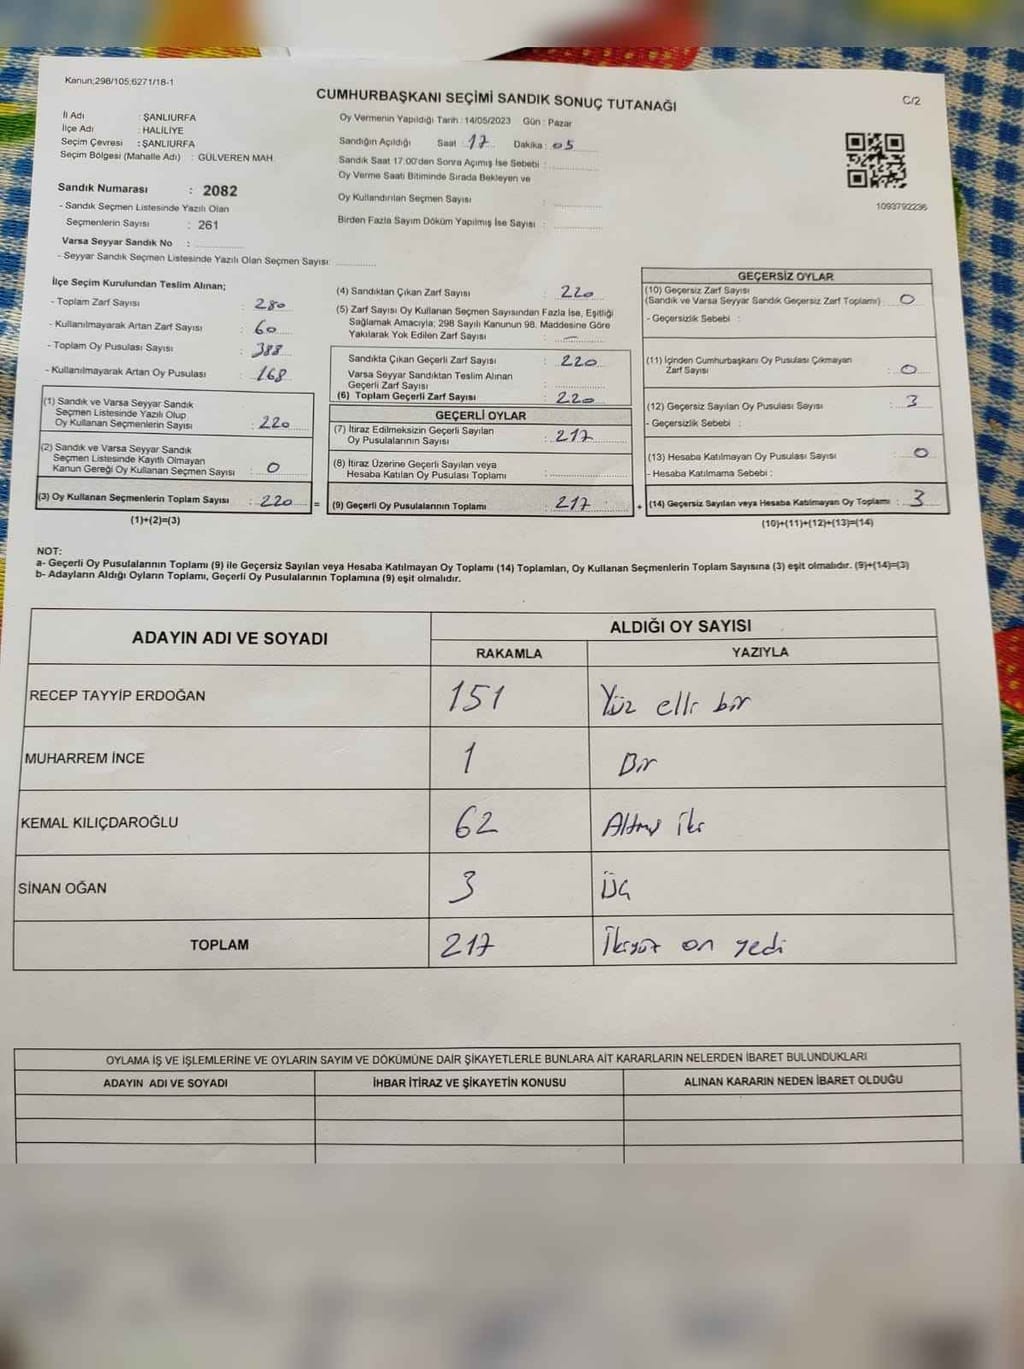 Kanun;298/105;6271/18-1
C/2
CUMHURBAŞKANI SEÇİMİ SANDIK SONUÇ TUTANAĞI
İl Adı : ŞANLIURFA
İlçe Adı : HALİLİYE
Seçim Çevresi : ŞANLIURFA
Seçim Bölgesi (Mahalle Adı) : GÜLVEREN MAH.
Sandık Numarası : 2082
- Sandık Seçmen Listesinde Yazılı Olan
Seçmenlerin Sayısı : 261
Varsa Seyyar Sandık No :
- Seyyar Sandık Seçmen Listesinde Yazılı Olan Seçmen Sayısı:
Oy Vermenin Yapıldığı Tarih : 14/05/2023 Gün : Pazar
Sandığın Açıldığı Saat : 17 Dakika : 05
Sandık Saat 17.00'den Sonra Açımış İse Sebebi :
Oy Verme Saati Bitiminde Sırada Bekleyen ve
Oy Kullandırılan Seçmen Sayısı :
Birden Fazla Sayım Döküm Yapılmış İse Sayısı :
1093792236
İlçe Seçim Kurulundan Teslim Alınan;
- Toplam Zarf Sayısı : 280
- Kullanılmayarak Artan Zarf Sayısı : 60
- Toplam Oy Pusulası Sayısı : 388
- Kullanılmayarak Artan Oy Pusulası : 168
(1) Sandık ve Varsa Seyyar Sandık
Seçmen Listesinde Yazılı Olup
Oy Kullanan Seçmenlerin Sayısı : 220
(2) Sandık ve Varsa Seyyar Sandık
Seçmen Listesinde Kayıtlı Olmayan
Kanun Gereği Oy Kullanan Seçmen Sayısı : 0
(3) Oy Kullanan Seçmenlerin Toplam Sayısı : 220 =
(1)+(2)=(3)
(4) Sandıktan Çıkan Zarf Sayısı : 220
(5) Zarf Sayısı Oy Kullanan Seçmen Sayısından Fazla İse, Eşitliği
Sağlamak Amacıyla; 298 Sayılı Kanunun 98. Maddesine Göre
Yakılarak Yok Edilen Zarf Sayısı : —
Sandıkta Çıkan Geçerli Zarf Sayısı : 220
Varsa Seyyar Sandıktan Teslim Alınan
Geçerli Zarf Sayısı :
(6) Toplam Geçerli Zarf Sayısı : 220
GEÇERLİ OYLAR
(7) İtiraz Edilmeksizin Geçerli Sayılan
Oy Pusulalarının Sayısı : 217
(8) İtiraz Üzerine Geçerli Sayılan veya
Hesaba Katılan Oy Pusulası Toplamı :
(9) Geçerli Oy Pusulalarının Toplamı : 217 +
GEÇERSİZ OYLAR
(10) Geçersiz Zarf Sayısı
(Sandık ve Varsa Seyyar Sandık Geçersiz Zarf Toplamı) : 0
- Geçersizlik Sebebi :
(11) İçinden Cumhurbaşkanı Oy Pusulası Çıkmayan
Zarf Sayısı : 0
(12) Geçersiz Sayılan Oy Pusulası Sayısı : 3
- Geçersizlik Sebebi :
(13) Hesaba Katılmayan Oy Pusulası Sayısı : 0
- Hesaba Katılmama Sebebi :
(14) Geçersiz Sayılan veya Hesaba Katılmayan Oy Toplamı : 3
(10)+(11)+(12)+(13)=(14)
NOT:
a- Geçerli Oy Pusulalarının Toplamı (9) ile Geçersiz Sayılan veya Hesaba Katılmayan Oy Toplamı (14) Toplamları, Oy Kullanan Seçmenlerin Toplam Sayısına (3) eşit olmalıdır. (9)+(14)=(3)
b- Adayların Aldığı Oyların Toplamı, Geçerli Oy Pusulalarının Toplamına (9) eşit olmalıdır.
ADAYIN ADI VE SOYADI ALDIĞI OY SAYISI
RAKAMLA YAZIYLA
RECEP TAYYİP ERDOĞAN 151 Yüz elli bir
MUHARREM İNCE 1 Bir
KEMAL KILIÇDAROĞLU 62 Altmış iki
SİNAN OĞAN 3 Üç
TOPLAM 217 İkiyüz on yedi
OYLAMA İŞ VE İŞLEMLERİNE VE OYLARIN SAYIM VE DÖKÜMÜNE DAİR ŞİKAYETLERLE BUNLARA AİT KARARLARIN NELERDEN İBARET BULUNDUKLARI
ADAYIN ADI VE SOYADI İHBAR İTİRAZ VE ŞİKAYETİN KONUSU ALINAN KARARIN NEDEN İBARET OLDUĞU